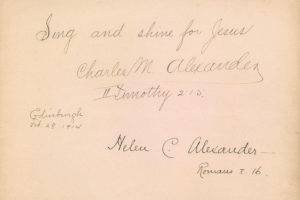 Sing and shine for Jesus
Charles M. Alexander
II Timothy 2:15.
Edinburgh
Feb. 28. 1914
Helen C. Alexander—
Romans I. 16.